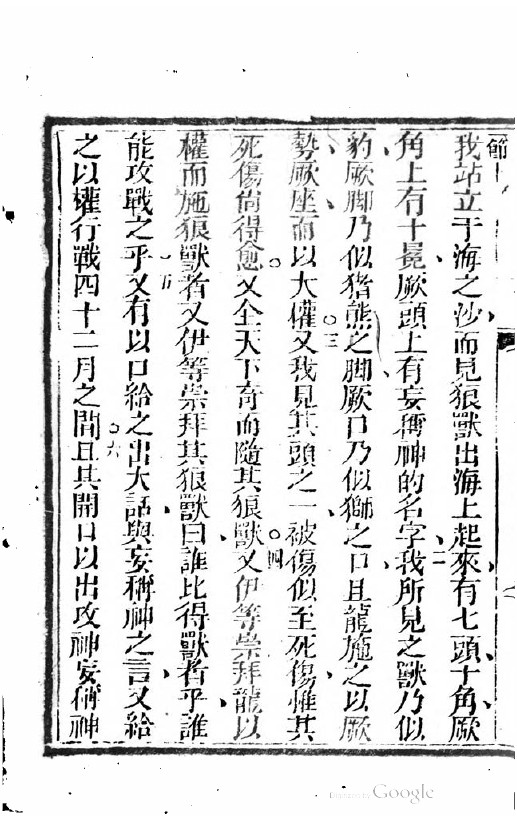 節一
我站立于海之沙而見狼獸出海上起來有七頭十角厥
角上有十冕厥頭上有妄稱神的名字我所見之獸乃似
二
豹厥脚乃似猪熊之脚厥口乃似獅之口且龍施之以厥
勢厥座而以大權又我見其頭之一被傷似至死傷惟其
三
死傷尚得愈又全天下奇而隨其狼獸又伊等崇拜龍以
四
權而施狼獸者又伊等崇拜其狼獸曰誰比得獸者乎誰
能攻戰之乎又有以口給之出大話與妄稱神之言又給
五
之以權行戰四十二月之間且其開口以出攻神妄稱神
六
Google